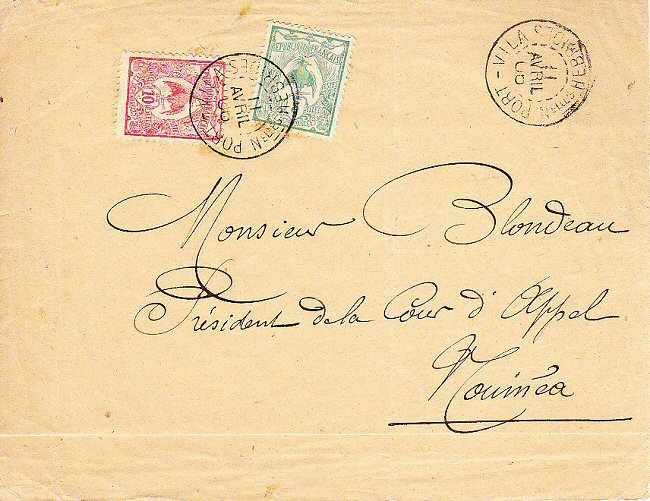 PORT-VILA
11
AVRIL
10
RÉPUBLIQUE FRANÇAISE
PORT-VILA
11
AVRIL
Monsieur Blondeau
Président de la Cour d'Appel
Nouméa